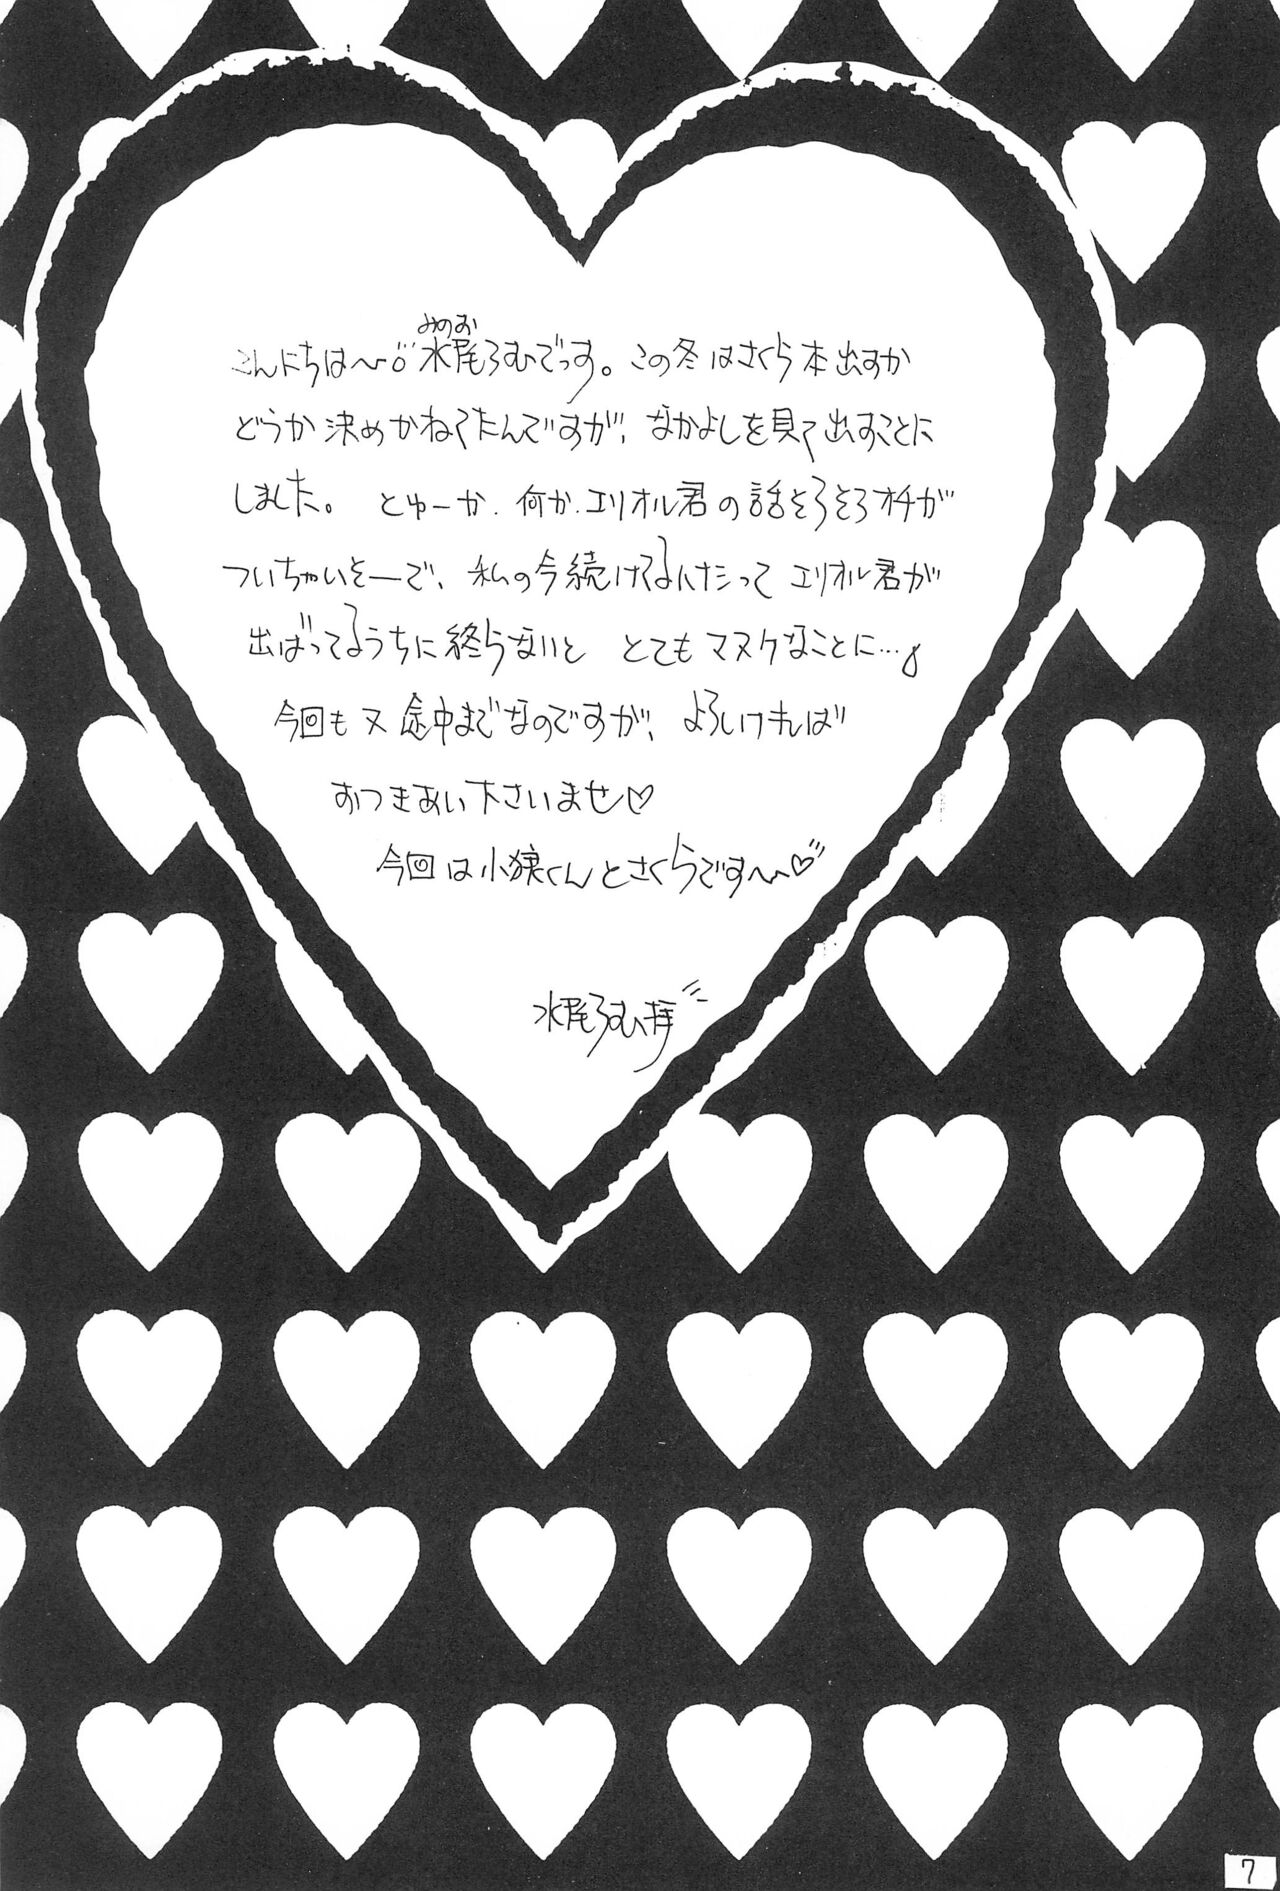 みのお
こんにちは〜 水尾ろむでっす。この冬はさくら本出すか
どうか決めかねてたんですが、なかよしを見て出すことに
しました。とゅーか、何か、エリオル君の話そろそろオチが
ついちゃいそーで、私の今続けてるけたって エリオル君が
出ばってるうちに終らないと とてもマヌケなことに…
今回も又途中までなのですが、よろしければ
おつきあい下さいませ♡
今回は小狼くんとさくらです〜♡
水尾ろむ拝
7